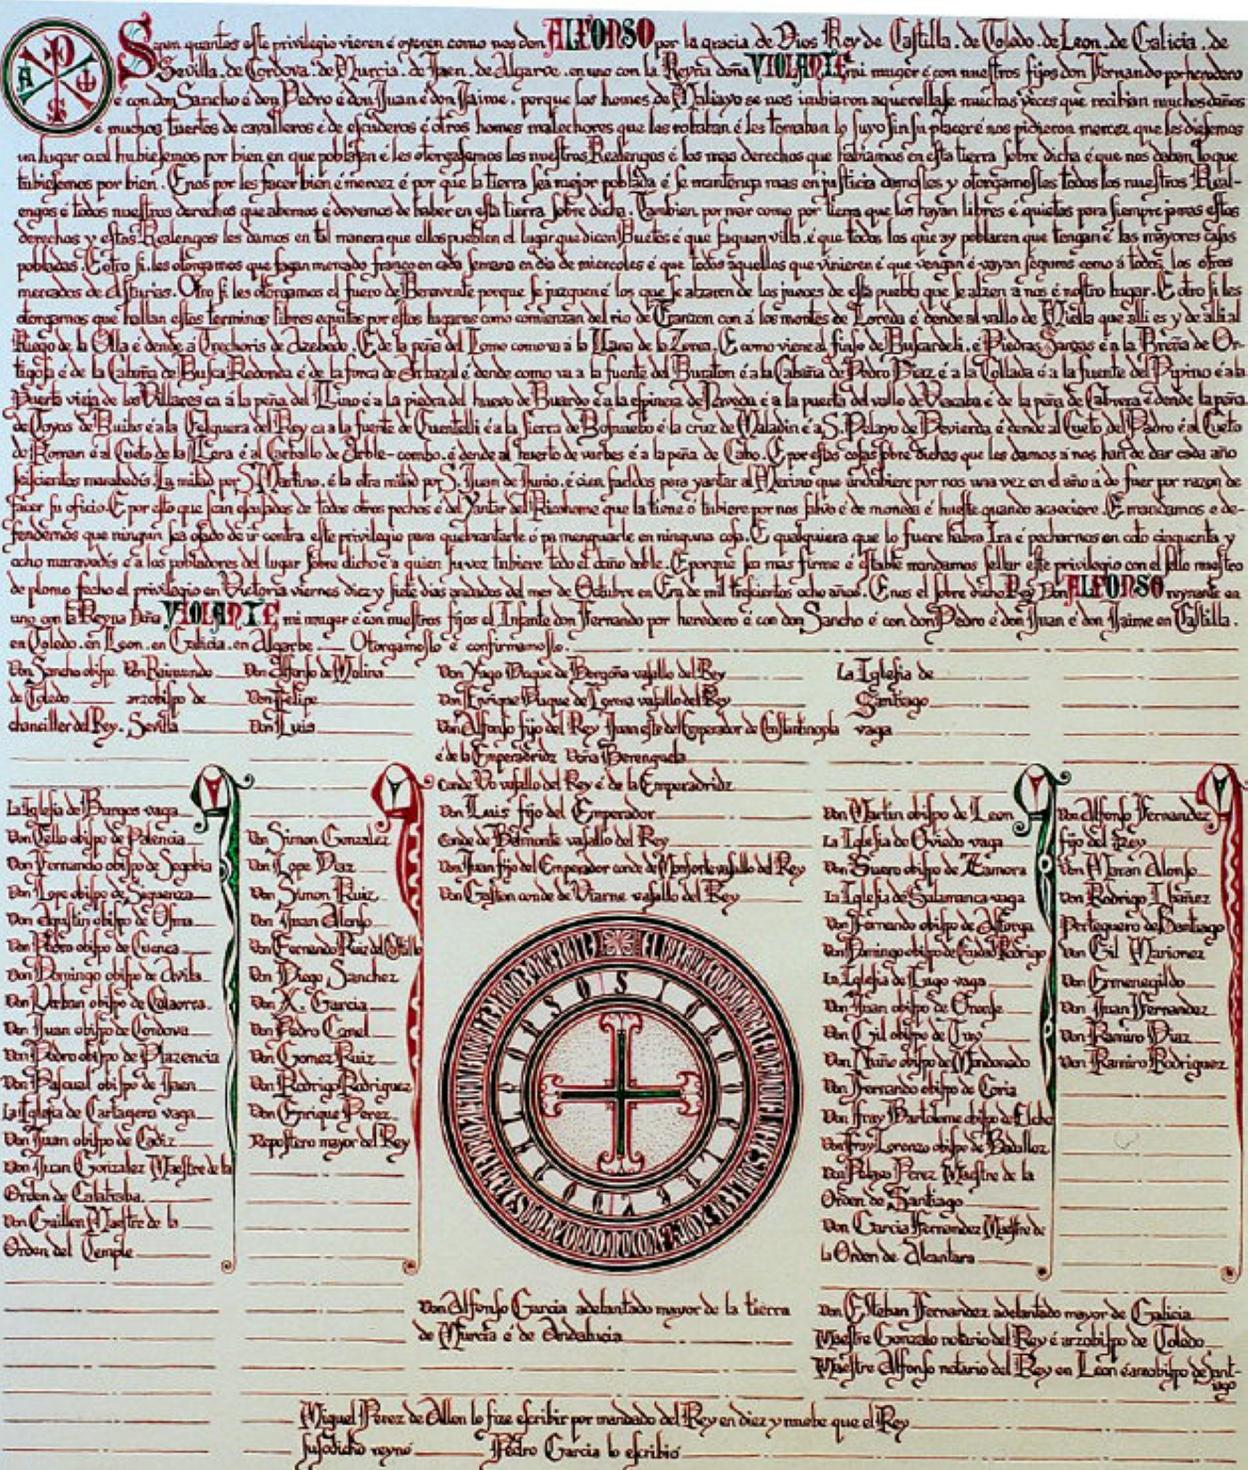 Sepan quantos este privilegio vieren é oyeren como nos don ALFONSO por la gracia de Dios Rey de Castilla. de Toledo. de Leon. de Galicia. de
Sevilla. de Cordova. de Murcia. de Jaen. de Algarve. en uno con la Reyna doña VIOLANTE mi muger é con nuestros fijos don Fernando por heredero
é con don Sancho é don Pedro é don Juan é don Jaime. porque los homes de Maliayo se nos imbiaron a querellase muchas veces que recibian muchos daños
é muchos tuertos de cavalleros é de escuderos é otros homes malechores que los robaban é les tomaban lo suyo sin su placer é nos pidieron mercez que les diesemos
un lugar cual hubiesemos por bien en que poblasen é les otorgasemos los nuestros Realengos é los mas derechos que habiamos en esta tierra sobre dicha é que nos daban lo que
tubiesemos por bien. E nos por les facer bien é mercez é por que la tierra sea mejor poblada é se mantenga mas en justicia damosles y otorgamosles todos los nuestros Real-
engos é todos nuestros derechos que abemos é devemos de haber en esta tierra sobre dicha. Tambien por mar como por tierra que los hayan libres é quietos para siempre jamas estos
derechos y estos Realengos les damos en tal manera que ellos pueblen el lugar que dicen Buetes é que faguen villa. é que todos los que ay poblaren que tengan é las mayores casas
pobladas. E otro si. les otorgamos que fagan mercado franco en cada semana en dia de miercoles é que todos aquellos que vinieren é que vengan é vayan seguros como á todos los otros
mercados de Asturias. Otro si les otorgamos el fuero de Benavente porque se juzguen é los que se alzaren de los jueces de esta puebla que se alzen a nos é nostro lugar. E otro si les
otorgamos que hallan estos terminos libres equitas por estos lugares como comienzan del rio de Tranzon con á los montes de Loreda é dende al vallo de Miella que alli es y de alli al
Ruego de la Olla é dende á Trechoris de Azebedo. E de la peña del Lomo como va á la Llana de la Zorea. E como viene al finso de Buscardeli. é Piedras Sangas é á la Breña de Or-
tigosa é de la Cabaña de Busca Redonda é de la forca de Arbazal é dende como va a la fuente del Buraton é á la Cabaña de Pedro Diaz é á la Collada é á la fuente del Pipino é a la
Puerta vieja de los Villares ca á la peña del Llino é a la piedra del huevo de Buardo é a la espinera de é a la puerta del vallo de Viacaba é de la peña de Cabrera é dende la peña
de Toyos de Buibo é a la Felguera del Rey ca a la fuente de Cuentelli é á la sierra de é la cruz de Maladin é a S. Pelayo de Pevierda é dende al Cueto del Padro é al Cueto
de Roman é al Cueto de la Llera é al Carballo de Arble-combo. é dende al huerto de varbes é a la peña de Cabo. E por estas cosas sobre dichas que les damos á nos han de dar cada año
seiscientos marabedis. La mitad por S. Martino. é la otra mitad por S. Juan de Junio. é cien sueldos para yantar al Merino que andubiere por nos una vez en el año á do fuer por razon de
facer su oficio. E por esto que sean escusados de todos otros pechos é del Yantar del Ricohome que la tiene ó tubiere por nos salvo é de moneda é hueste quando acaeciere. E mandamos e de-
fendemos que ningun sea osado de ir contra este privilegio para quebrantarle ó pa menguarle en ninguna cosa. E qualquiera que lo fuere habra Ira é pecharnos en coto cinquenta y
ocho maravedis é a los pobladores del lugar sobre dicho é a quien su voz tubiere todo el daño doble. E porque sea mas firme é estable mandamos sellar este privilegio con el sello nuestro
de plomo fecho el privilegio en Victoria viernes diez y siete dias andados del mes de Octubre en Era de mil trescientos ocho años. E nos el sobre dicho Rey Don ALFONSO reynante en
uno con la Reyna Dña VIOLANTE mi muger é con nuestros fijos el Infante don Fernando por heredero é con don Sancho é con don Pedro é don Juan é don Jaime en Castilla.
en Toledo. en Leon. en Galicia. en Algarbe. Otorgamoslo é confirmamoslo.
Don Sancho obispo
de Toledo
chanciller del Rey.
Don Raimundo
arzobispo de
Sevilla
Don Alfonso de Molina
Don Felipe
Don Luis
Don Yugo Duque de Borgoña vasallo del Rey
Don Enrique Duque de Lorena vasallo del Rey
Don Alfonso fijo del Rey Juan este del Emperador de Constantinopla
é de la Emperadridz Doña Berenguela
Conde Vo vasallo del Rey é de la Emperadridz
Don Luis fijo del Emperador
Conde de Belmonte vasallo del Rey
Don Juan fijo del Emperador conde de Monforte vasallo del Rey
Don Gaston conde de Viarne vasallo del Rey
La Iglesia de
Santiago
vaga
La Iglesia de Burgos vaga
Don Tello obispo de Palencia
Don Fernando obispo de Segobia
Don Lope obispo de Siguenza
Don Agustin obispo de Osma
Don Pedro obispo de Cuenca
Don Domingo obispo de Avila
Don Verban obispo de Calaorra
Don Juan obispo de Cordova
Don Pedro obispo de Plazencia
Don Pascual obispo de Jaen
La Iglesia de Cartagena vaga
Don Juan obispo de Cadiz
Don Juan Gonzalez Maestre de la
Orden de Calatraba.
Don Guillen Maestre de la
Orden del Temple
Don Simon Gonzalez
Don Lope Diaz
Don Simon Ruiz
Don Juan Alonso
Don Fernando Ruiz del Castillo
Don Diego Sanchez
Don X. Garcia
Don Pedro Cornel
Don Gomez Ruiz
Don Rodrigo Rodriguez
Don Enrique Perez
Repostero mayor del Rey
Don Martin obispo de Leon
La Iglesia de Oviedo vaga
Don Suero obispo de Zamora
La Iglesia de Salamanca vaga
Don Fernando obispo de Astorga
Don Domingo obispo de Ciudad Rodrigo
La Iglesia de Lugo vaga
Don Juan obispo de Orense
Don Gil obispo de Tuy
Don Nuño obispo de Mondonedo
Don Fernando obispo de Coria
Don fray Bartolome obispo de Elche
Don fray Lorenzo obispo de Badalloz
Don Pelayo Perez Maestre de la
Orden de Santiago
Don Garcia Fernandez Maestre de
la Orden de Alcantara
Don Alfonso Fernandez
fijo del Rey
Don Maran Alonso
Don Rodrigo Ibañez
Perteguero de Santiago
Don Gil Marionez
Don Ermenegildo
Don Juan Fernandez
Don Ramiro Diaz
Don Ramiro Rodriguez
Don Alfonso Garcia adelantado mayor de la tierra
de Murcia é de Andalucia
Don Esteban Fernandez adelantado mayor de Galicia
Maestre Gonzalo notario del Rey é arzobispo de Toledo
Maestre Alfonso notario del Rey en Leon é arzobispo de Sant-
iago
Miguel Perez de Allon lo fize escribir por mandado del Rey en diez y nuebe que el Rey
susodicho reynó Pedro Garcia lo escribió